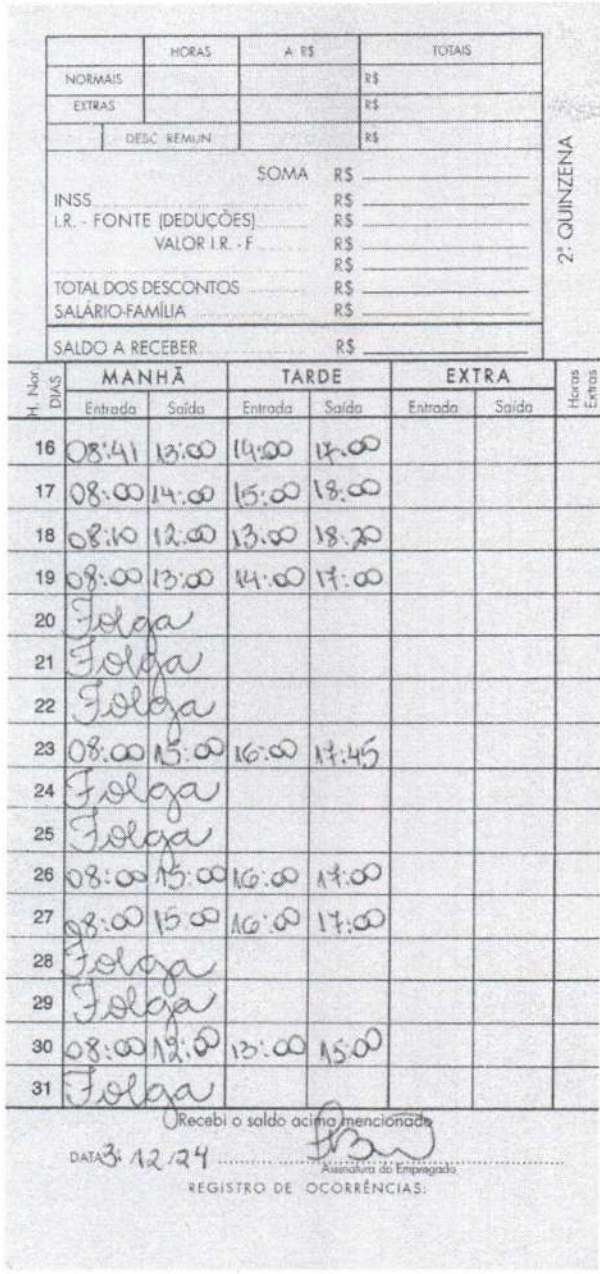 HORAS A R$ TOTAIS
NORMAIS R$
EXTRAS R$
DESC. REMUN R$
SOMA R$
INSS R$
I.R. - FONTE (DEDUÇÕES) R$
VALOR I.R. - F R$
R$
TOTAL DOS DESCONTOS R$
SALÁRIO-FAMÍLIA R$
SALDO A RECEBER R$
2ª QUINZENA
H. Nor. DIAS MANHÃ TARDE EXTRA Horas Extras
Entrada Saída Entrada Saída Entrada Saída
16 08:41 13:00 14:00 17:00
17 08:00 14:00 15:00 18:00
18 08:10 12:00 13:00 18:20
19 08:00 13:00 14:00 17:00
20 Folga
21 Folga
22 Folga
23 08:00 15:00 16:00 17:45
24 Folga
25 Folga
26 08:00 15:00 16:00 17:00
27 08:00 15:00 16:00 17:00
28 Folga
29 Folga
30 08:00 12:00 13:00 15:00
31 Folga
Recebi o saldo acima mencionado
DATA 31 12 /24
Assinatura do Empregado
REGISTRO DE OCORRÊNCIAS: